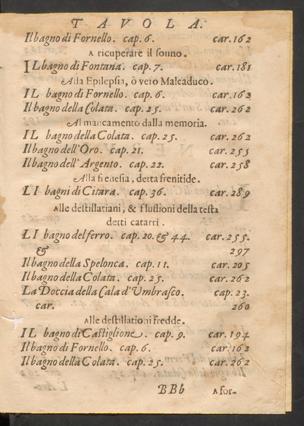 TAVOLA.
Il bagno di Fornello. cap. 6. car. 162
A ricuperare il sonno.
IL bagno di Fontana. cap. 7. car. 181
Alla Epilepsia, ò vero Malcaduco.
IL bagno di Fornello. cap. 6. car. 162
Il bagno della Colata. cap. 25. car. 262
Al mancamento dalla memoria.
IL bagno della Colata. cap. 25. car. 262
Il bagno dell'Oro. cap. 21. car. 255
Il bagno dell'Argento. cap. 22. car. 258
Alla frenesia, detta frenitide.
LI bagni di Citara. cap. 36. car. 289
Alle destillatiani, & flussioni della testa
detti catarri.
LI bagno del ferro. cap. 20. & 44. car. 255.
& 297
Il bagno della Spelonca. cap. 11. car. 205
Il bagno della Colata. cap. 25. car. 262
La Doccia della Cala d'Umbrasco. cap. 23.
car. 260
Alle destillationi fredde.
IL bagno di Castiglione. cap. 9. car. 194
Il bagno di Fornello. cap. 6. car. 162
Il bagno della Colata. cap. 25. car. 262
BBb Afor-